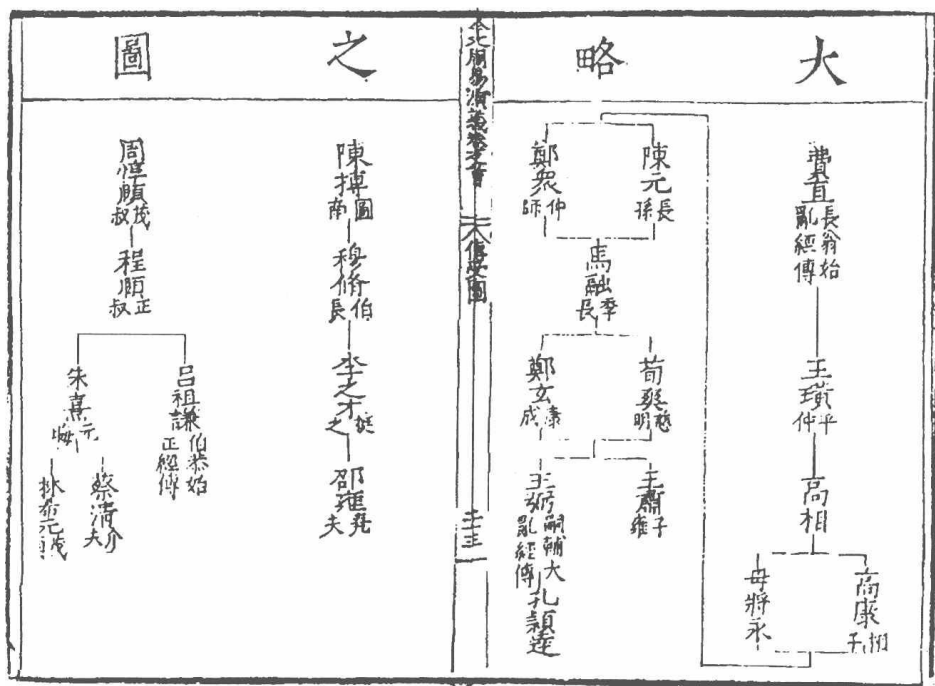 大略
費直長翁始亂經傳
王璜平仲
高相
高康相子
毋將永
陳元長孫
鄭眾仲師
馬融季長
荀爽慈明
鄭玄康成
王肅子雍
王弼輔嗣大亂經傳
孔穎達
周易
卷之首
傳受圖
之圖
陳摶圖南
穆脩伯長
李之才挺之
邵雍堯夫
周惇頤茂叔
程頤正叔
呂祖謙伯恭始正經傳
朱熹元晦
蔡清介夫
林希元茂貞